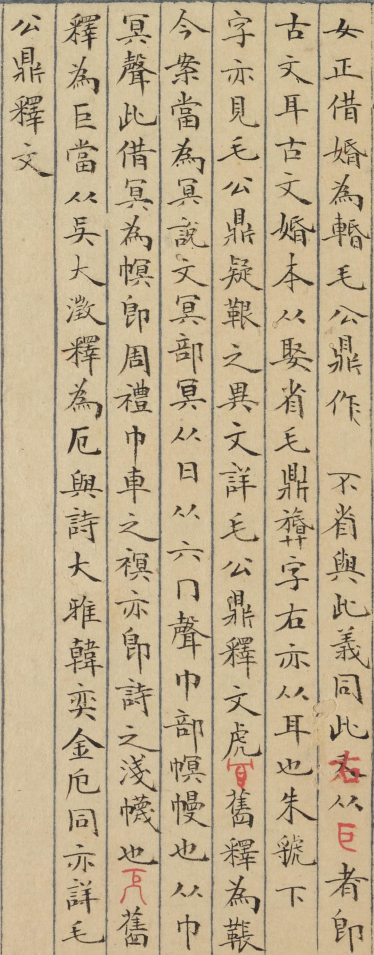 女正借婚為輴毛公鼎作 不省與此義同此右从者即
古文耳古文婚本从娶省毛鼎字右亦从耳也朱虢下
字亦見毛公鼎疑䩵之異文詳毛公鼎釋文虎舊釋為
今案當為冥說文冥部冥从日从六冂聲巾部幎幔也从巾
冥聲此借冥為幎即周禮巾車之𧛔亦即詩之淺幭也舊
釋為巨當从吳大澂釋為厄與詩大雅韓奕金厄同亦詳毛
公鼎釋文